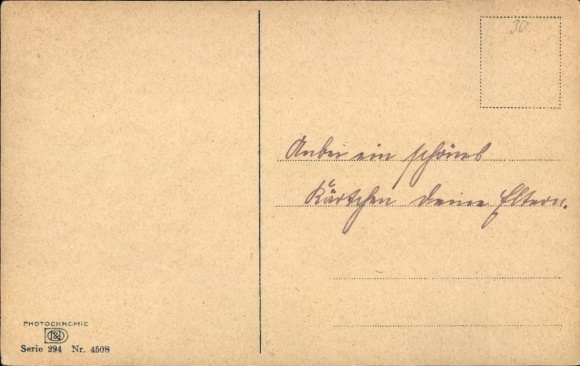 30
Anbei ein schönes
Kärtchen deine Eltern.
PHOTOCHROMIE
Serie 294 Nr. 4508